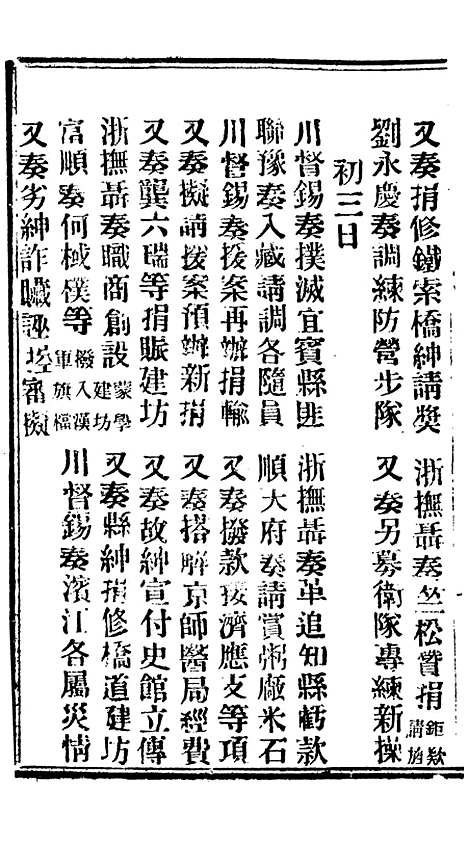 又奏捐修鐵索橋紳請獎
浙撫聶奏竺松贊捐鉅欵請旌
劉永慶奏調練防營步隊
又奏另募衛隊專練新操
初三日
川督錫奏撲滅宜賓縣匪
浙撫聶奏革追知縣虧款
聯豫奏入藏請調各隨員
順大府奏請賞粥廠米石
川督錫奏援案再辦捐輸
又奏撥款接濟應支等項
又奏擬請援案預辦新捐
又奏搭解京師醫局經費
又奏龔六瑞等捐賑建坊
又奏故紳宣付史館立傳
浙撫聶奏職商創設蒙學建坊
又奏縣紳捐修橋道建坊
富順奏何棫樸等撥入漢軍旗檔
川督錫奏濱江各屬災情
又奏劣紳詐贓誣控審擬